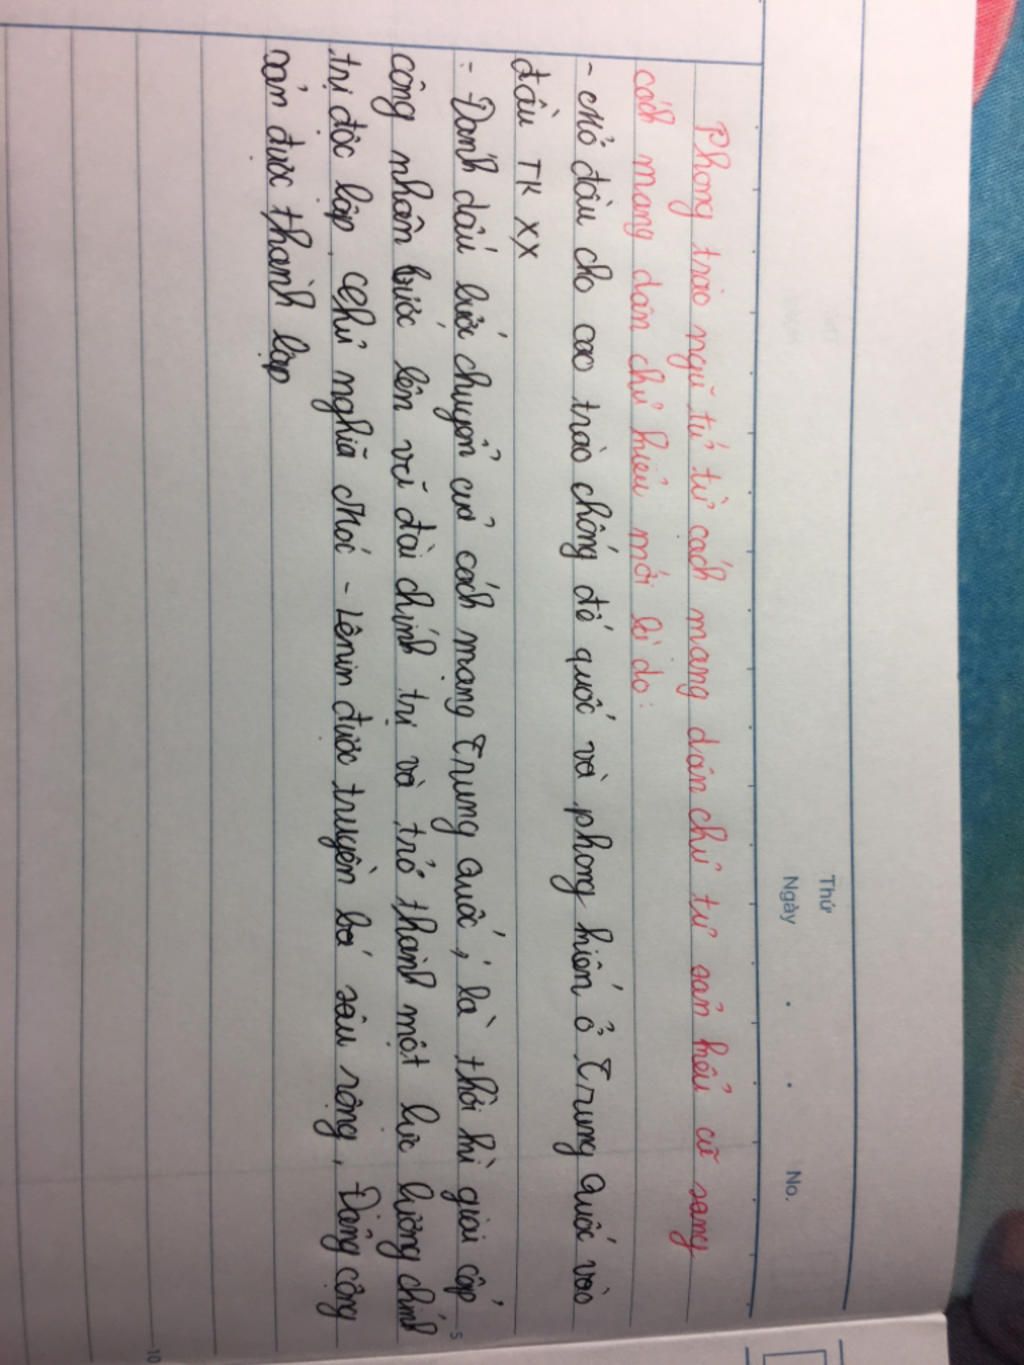 Thứ
Ngày . . No.
Phong trào ngũ tứ từ cách mạng dân chủ tư sản kiểu cũ sang
cách mạng dân chủ kiểu mới lí do:
- Mở đầu cho cao trào chống đế quốc và phong kiến ở Trung Quốc vào
đầu TK XX
- Đánh dấu bước chuyển của cách mạng Trung Quốc, là thời kì giai cấp
công nhân bước lên vũ đài chính trị và trở thành một lực lượng chính
trị độc lập, chủ nghĩa Mác - Lênin được truyền bá sâu rộng, Đảng cộng
sản được thành lập
5
10